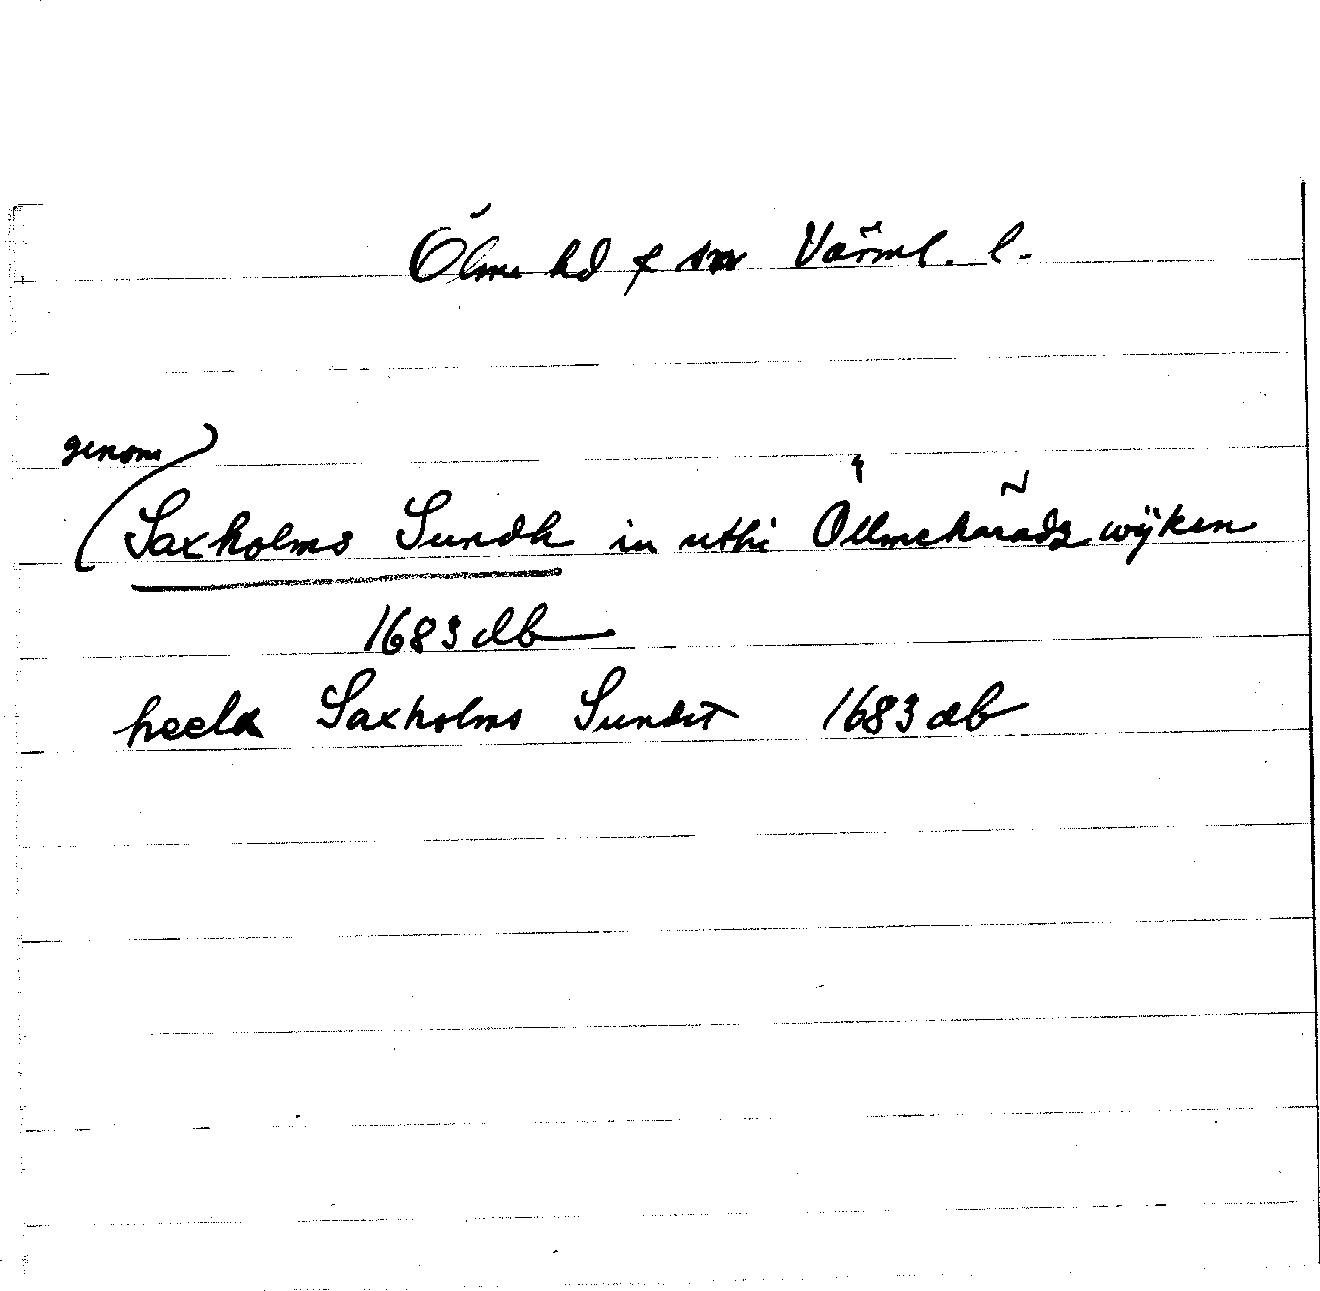 Ölme hd & sn Värml. l.
genom
(Saxholms Sundh in uthi Öllmehärädz wÿken
1683 db
heela Saxholms Sundet 1683 db